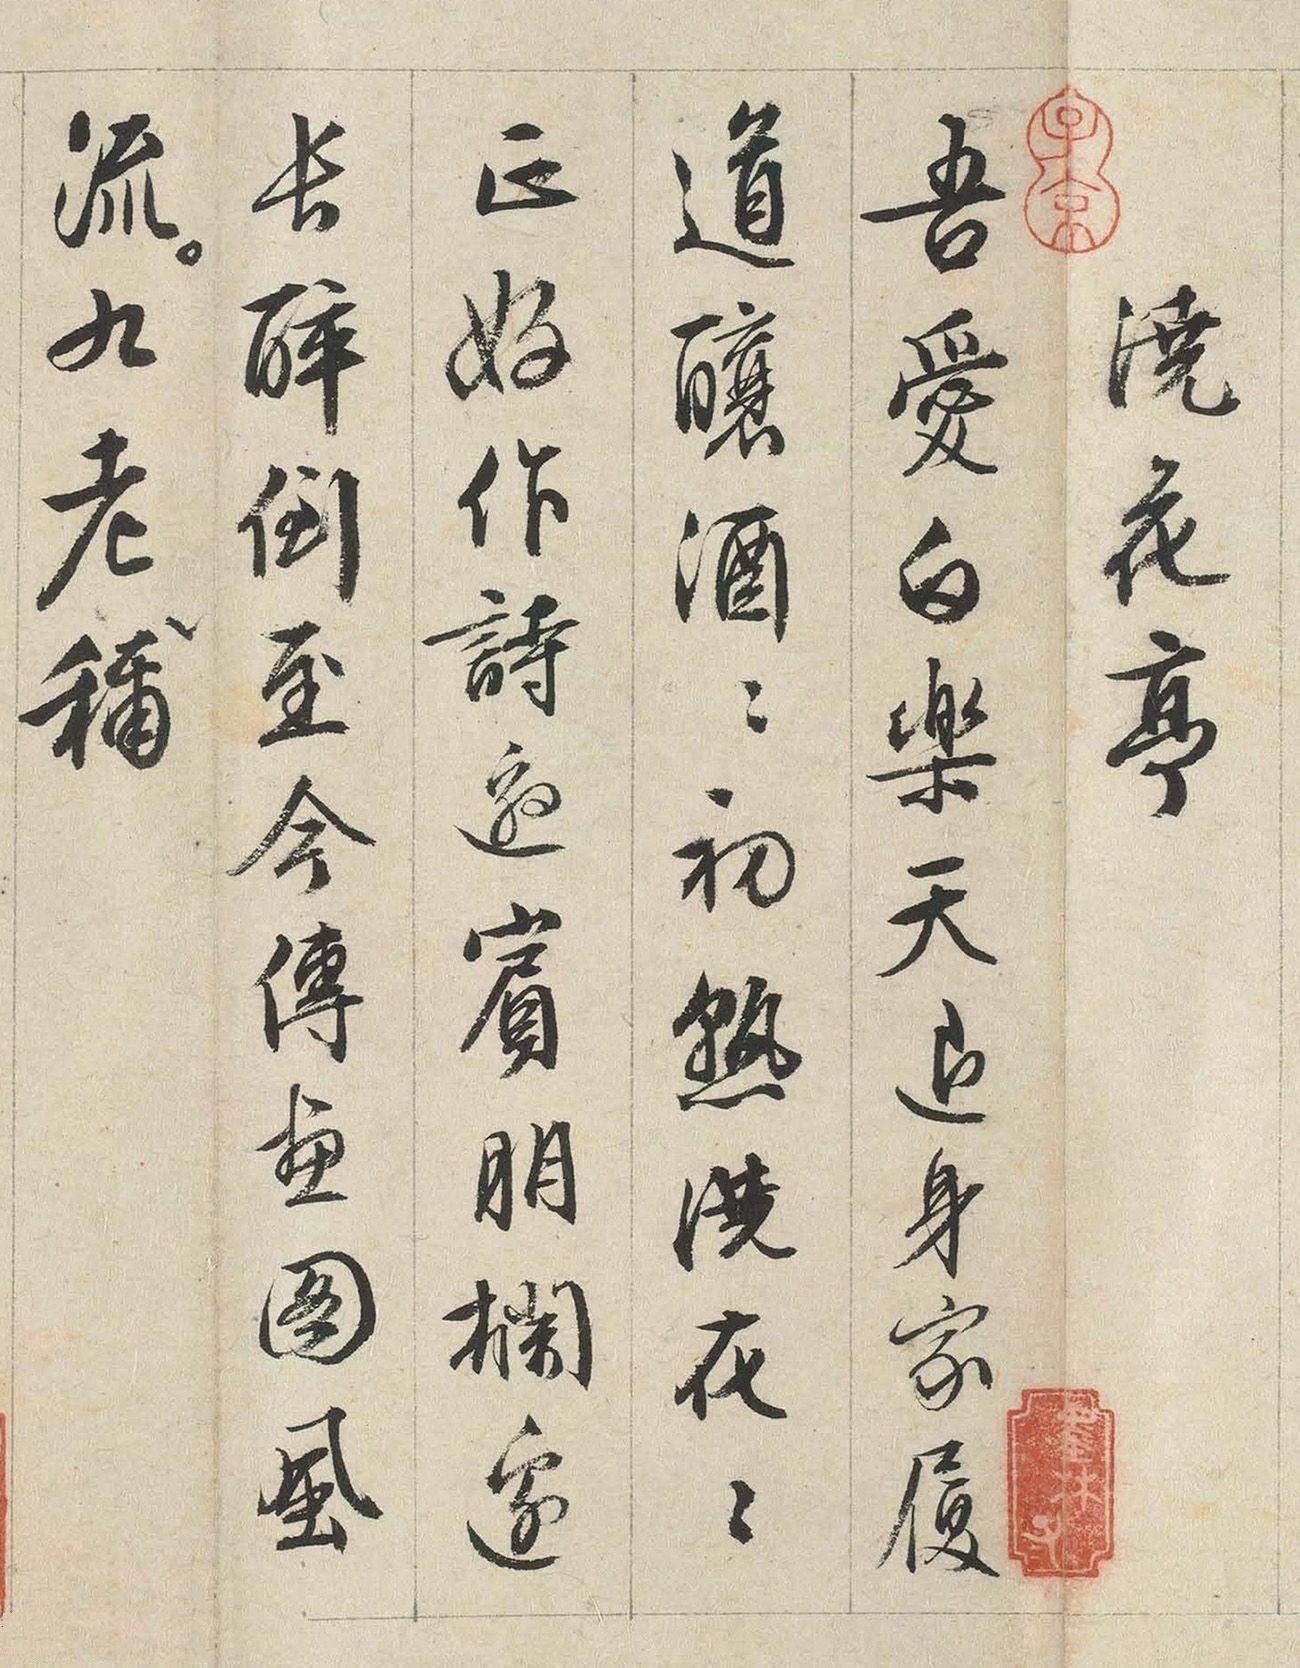 澆花亭
吾愛白樂天退身家履
道釀酒〻初熟澆花〻
正好作詩邀賓朋欄邊
长醉倒至今傳畫圖風
流。九老稱